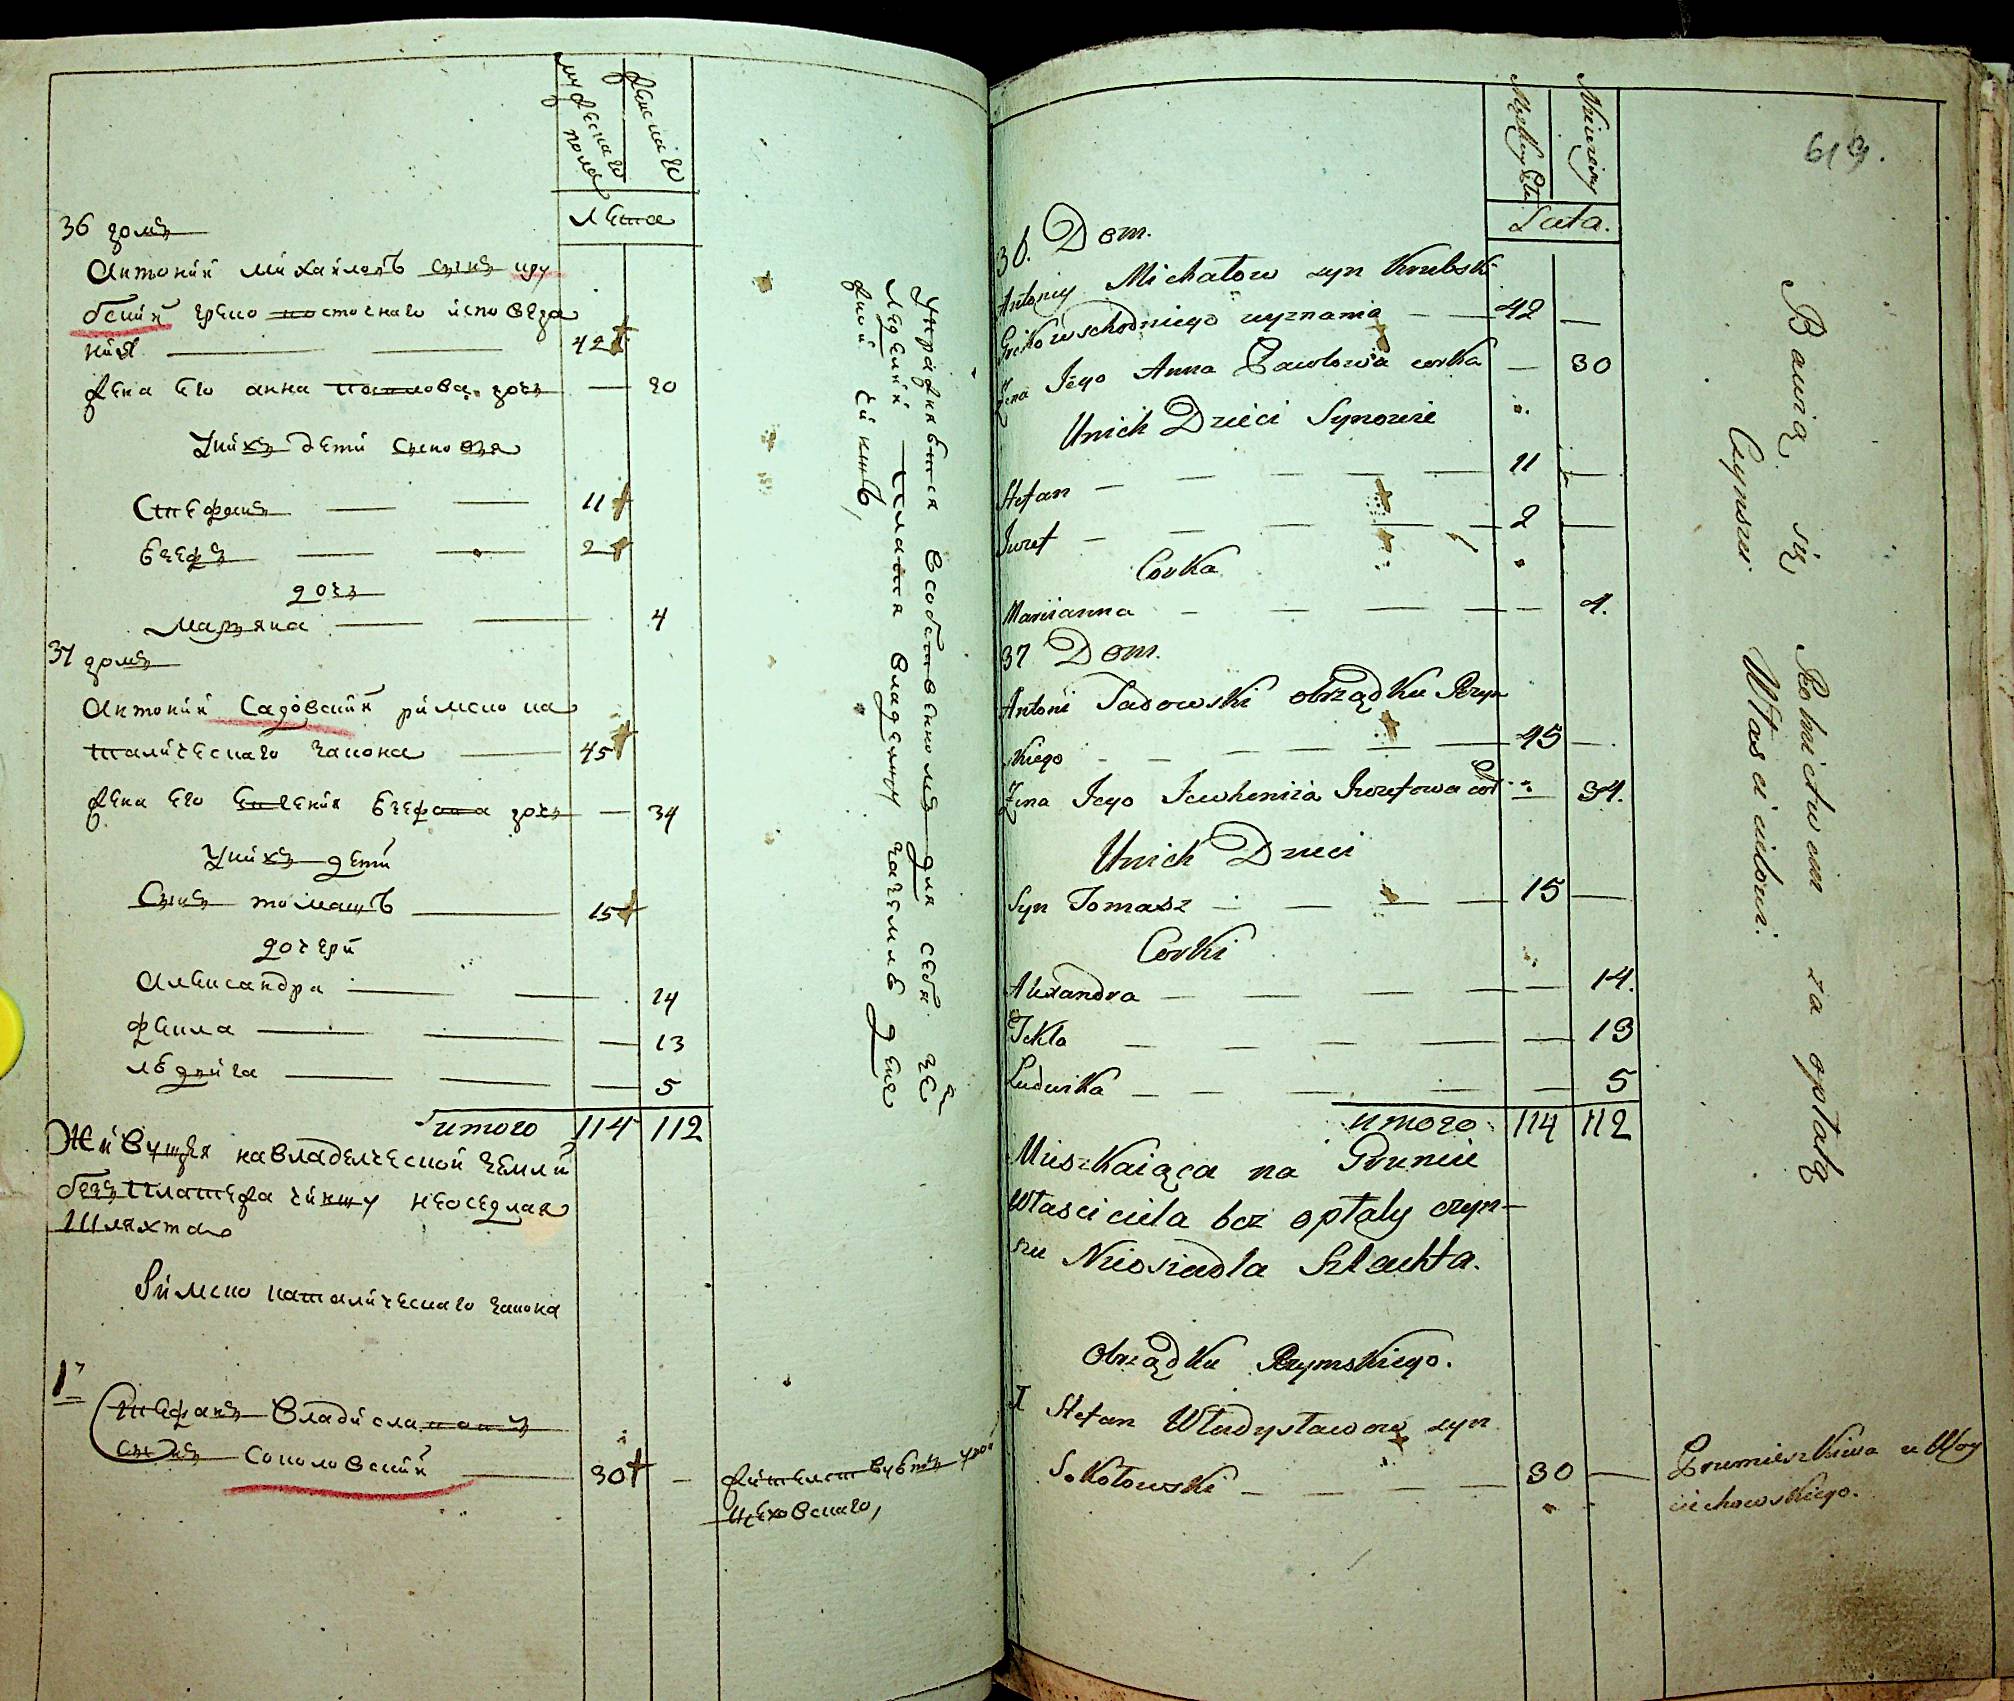 мужескаго пола
женскаго
лета
36 домъ
Антоний Михайловъ сынъ кру
бский греко восточнаго исповеда
ния 42
жена его анна павлова дочь — 30
У нихъ дети сыновья
Стефанъ 11
Езефъ 2
дочь
Марьяна 4
37 домъ
Антоний Садовский римско ка
толическаго закона 45
жена его Евгения Езефова дочь — 34
У нихъ дети
Сынъ томашъ 15
дочери
Александра 14
фекла — 13
людвига — 5
итого 114 112
Живущая на владелческой земли
безъ платежа чиншу неоседлая
Шляхта
Римско католическаго закона
1
Стефанъ Владиславовъ
сынъ Соколовский 30 —
жительствуетъ у вой
цеховскаго,
Упражняется в собственномъ для себя
земледелии владельцу
чиншъ
619.
Męskiey Płci
Lata.
36. Dom.
Antoniy Michałow syn Krubski
Greko wschodniego wyznania — 42 —
Żena Jego Anna Pawłowa corka — 30
Unich Dzieci Synowie
Stefan — 11 —
Iuzef — 2 —
Corka
Mariianna — 4.
37 Dom.
Antoni Sadowski obrządku Rzym
skiego — 45 —
Żena Jego Jewhenija Iuzefowa cor — 34.
Unich Dzieci
Syn Tomasz — 15 —
Corki
Alexandra — 14.
Tekla — 13
Ludwika — 5
итого 114 112
Mieszkaiąca na Gruncie
Własciciela bez opłaty czyn-
szu Nieosiadla Szlachta.
Obrządku Rzymskiego.
I Stefan Władysławow syn
Sokołowski — 30 —
Pomieszkiwa u Woy
ciechowskiego.
Bawią się Rolnictwem za opłatą
Czynszu Własciicielowi.